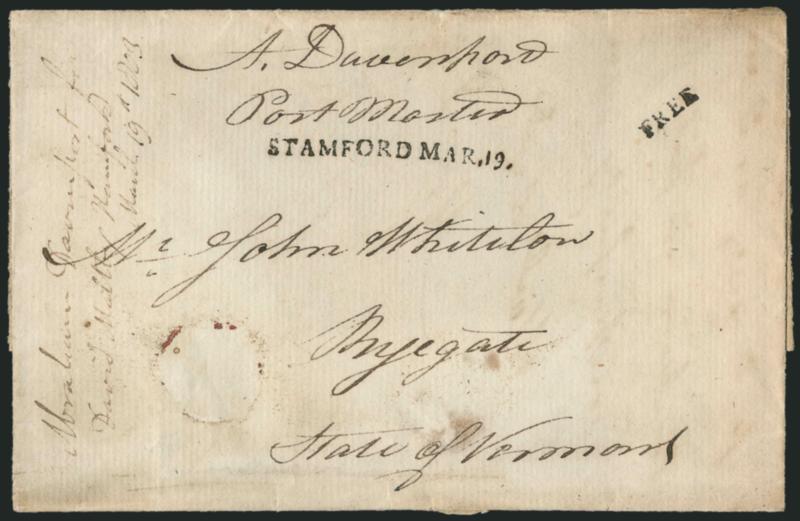 A. Davenport
Post Master
STAMFORD MAR. 19.
FREE
Mr. John Whitelow
Ryegate
State of Vermont
Abraham Davenport for
David
Stamford
March 19th 1803